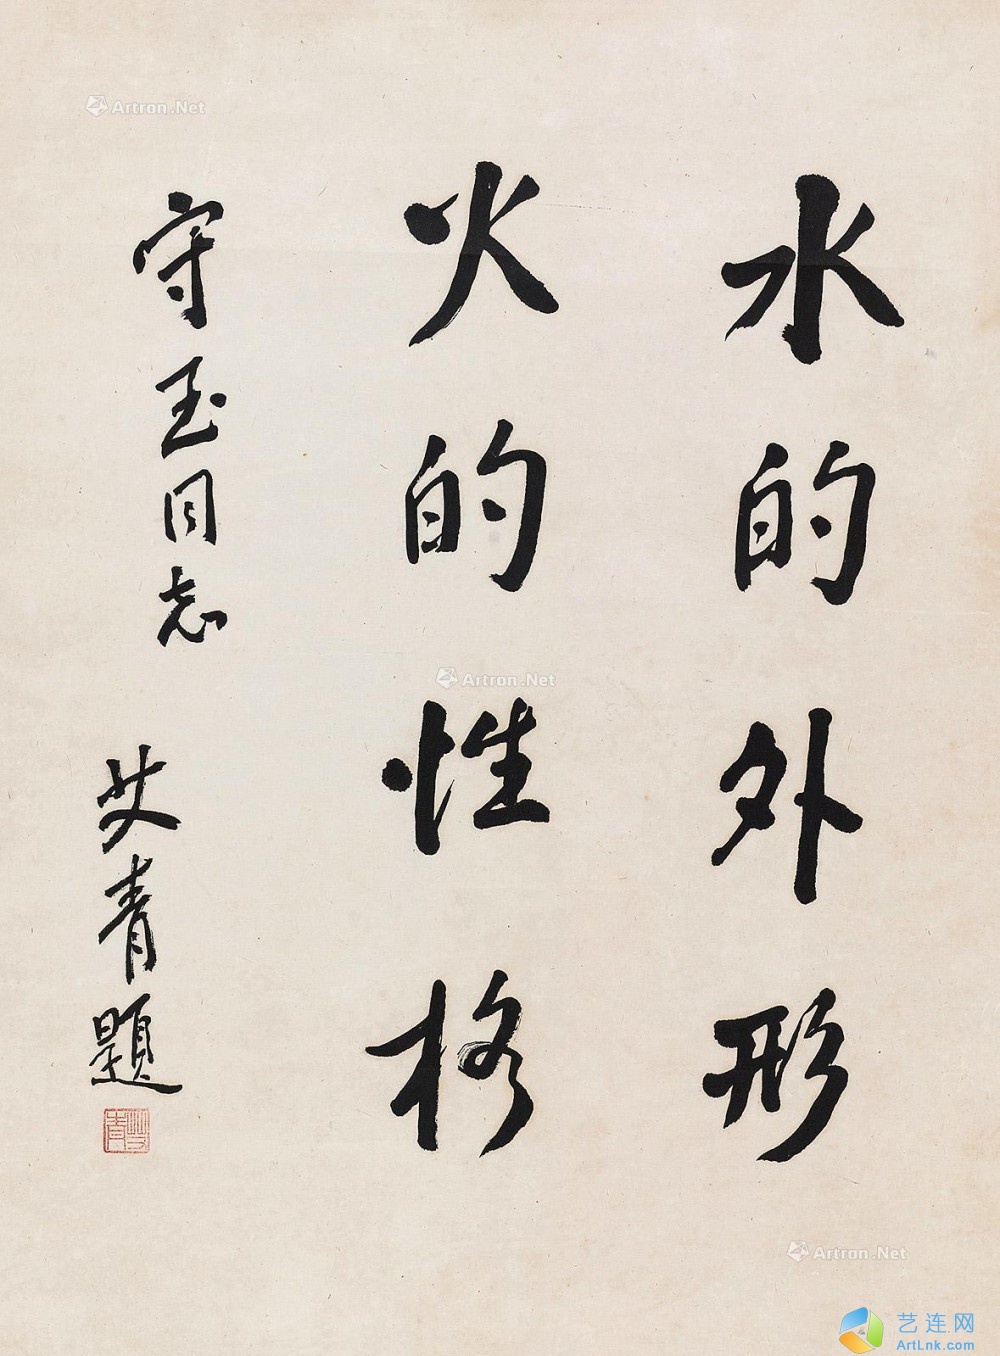 水的外形
火的性格
守玉同志
艾青題
艾青
Artron.Net
Artron.Net
Artron.Net
艺连网
ArtLnk.com